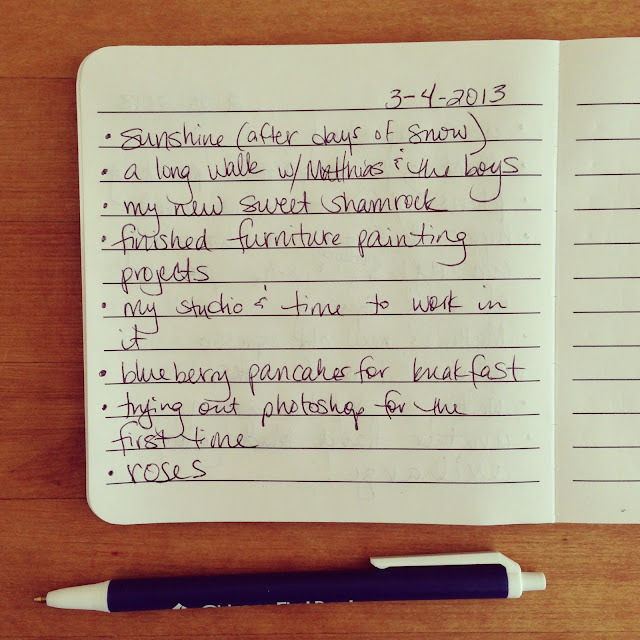 3-4-2013
• sunshine (after days of snow)
• a long walk w/ Matthias & the boys
• my new sweet shamrock
• finished furniture painting
projects
• my studio & time to work in
it
• blueberry pancakes for breakfast
• trying out photoshop for the
first time
• roses